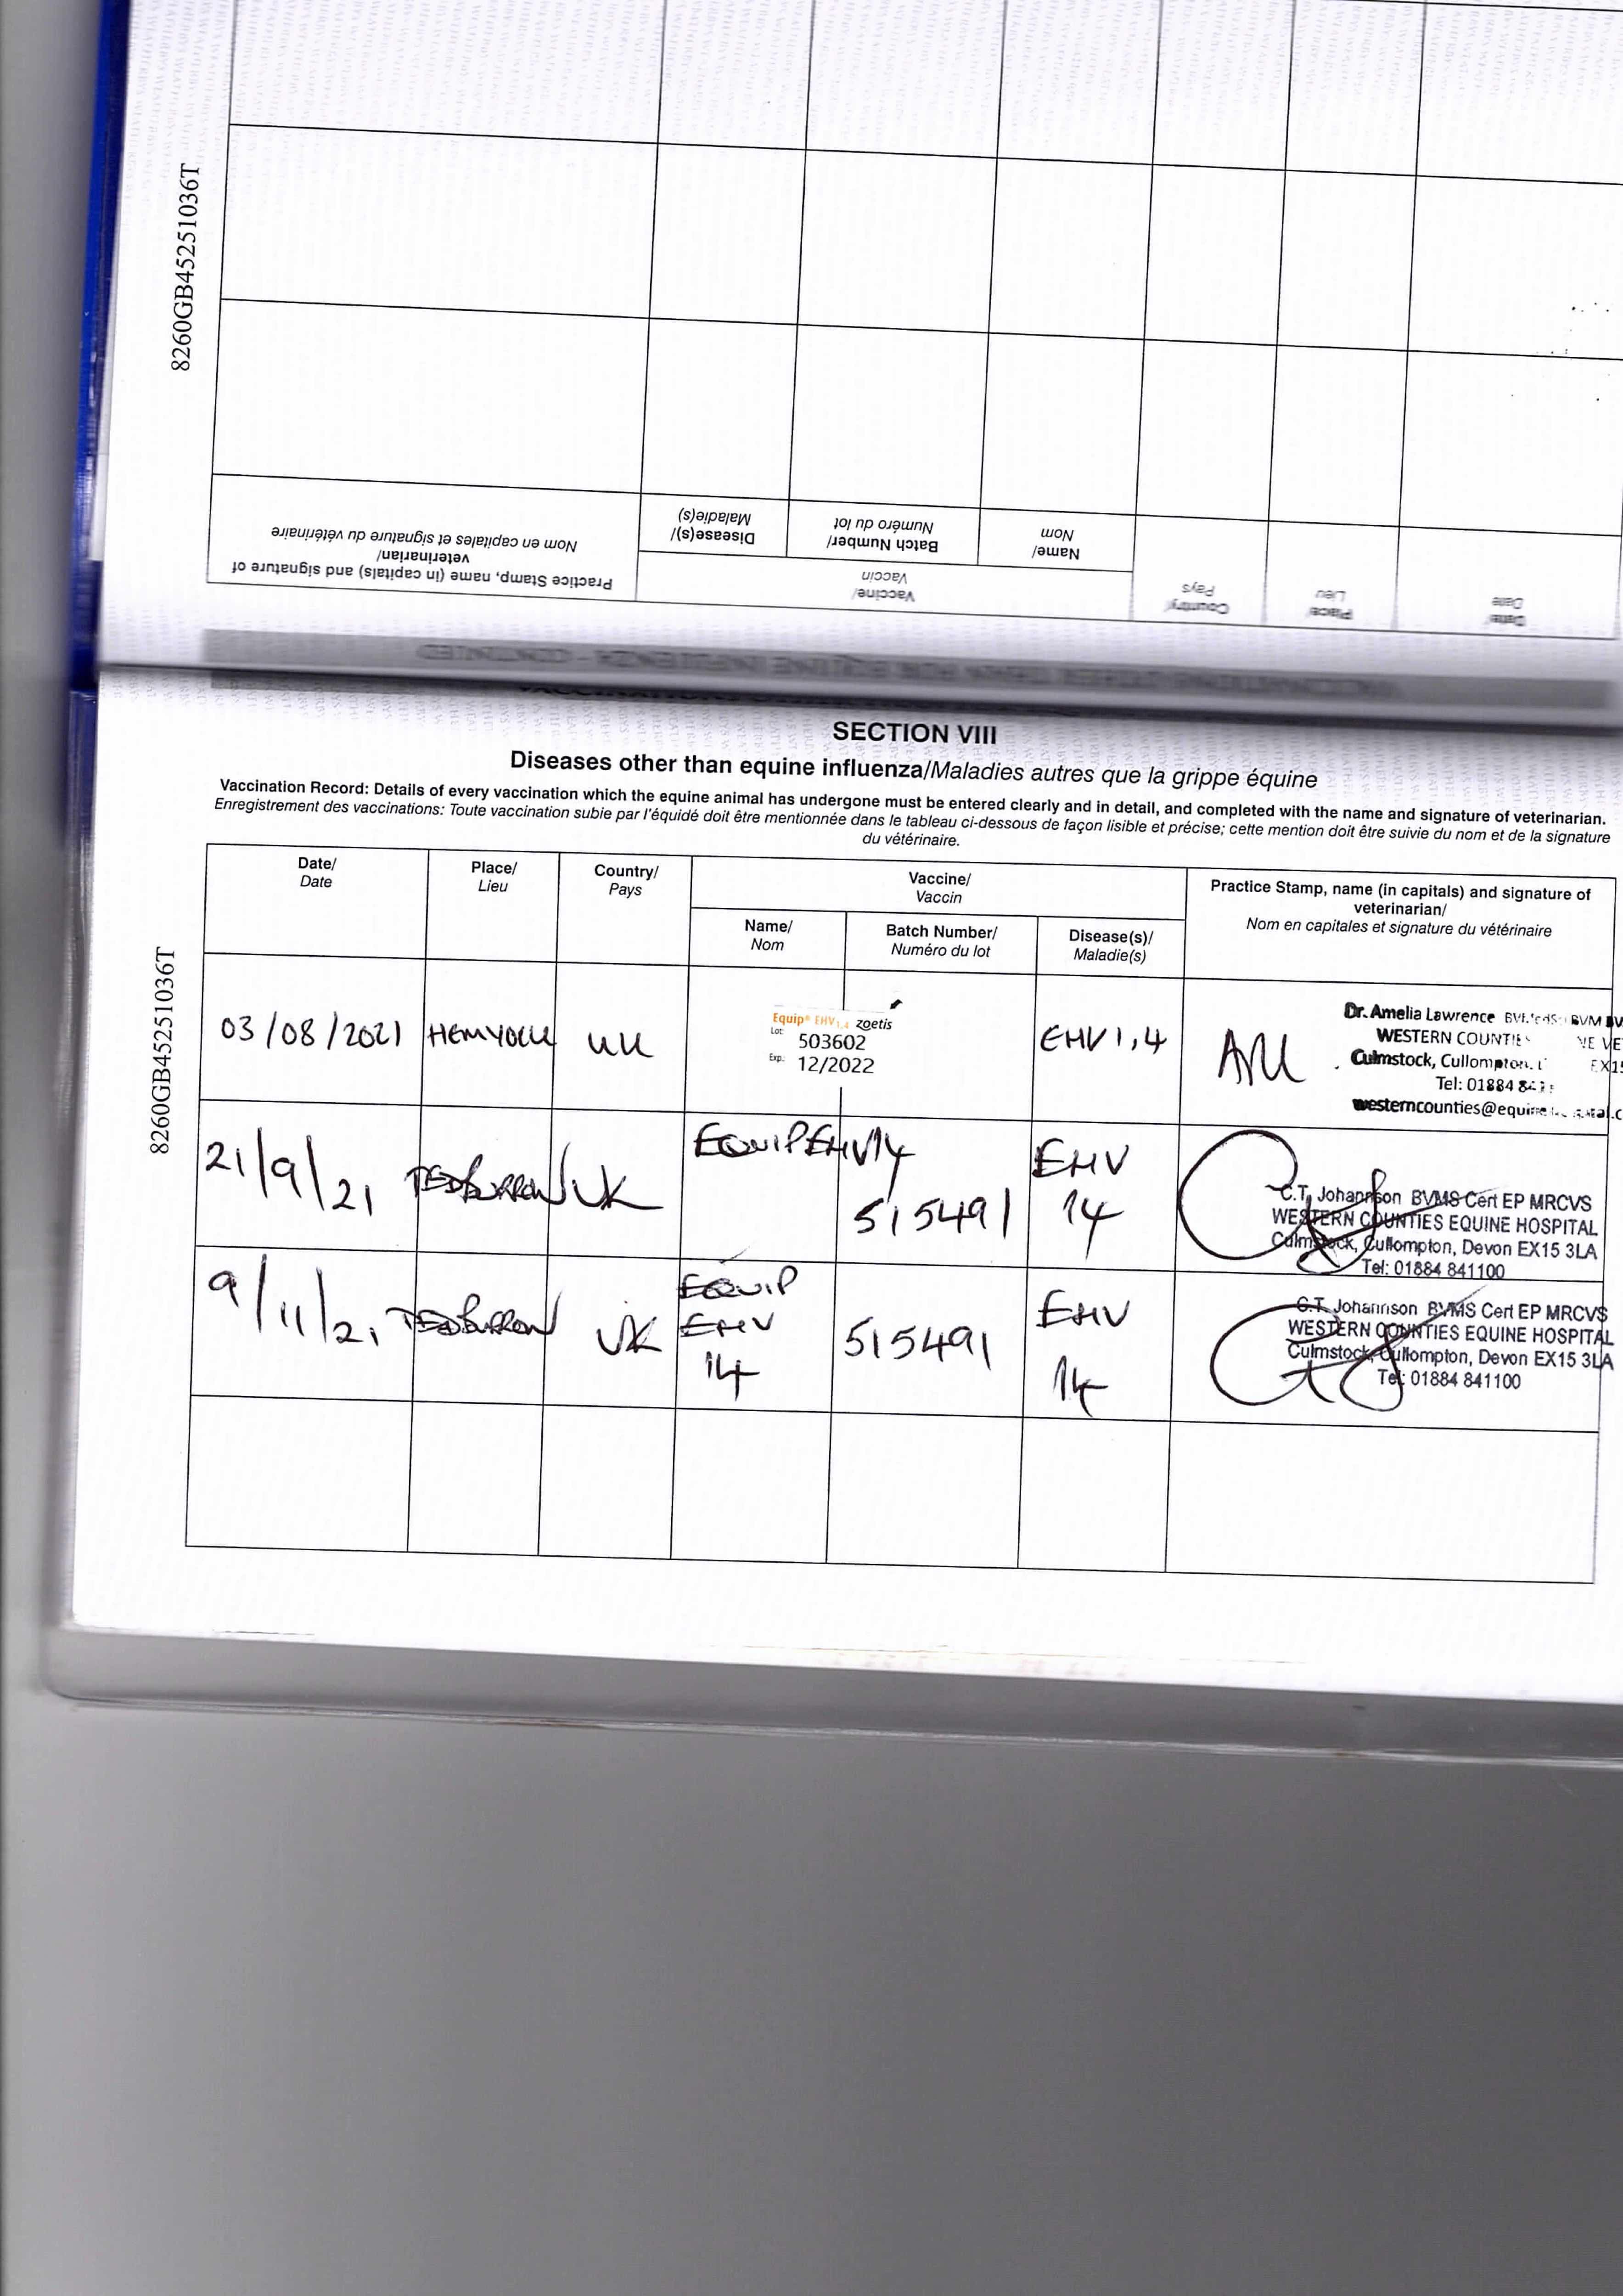 8260GB45251036T
Practice Stamp, name (in capitals) and signature of
veterinarian/
Nom en capitales et signature du vétérinaire
Vaccine/
Vaccin
Disease(s)/
Maladie(s)
Batch Number/
Numéro du lot
Name/
Nom
Country/
Pays
Place/
Lieu
Date/
Date
VACCINATIONS OTHER THAN FOR EQUINE INFLUENZA - CONTINUED
SECTION VIII
Diseases other than equine influenza/Maladies autres que la grippe équine
Vaccination Record: Details of every vaccination which the equine animal has undergone must be entered clearly and in detail, and completed with the name and signature of veterinarian.
Enregistrement des vaccinations: Toute vaccination subie par l'équidé doit être mentionnée dans le tableau ci-dessous de façon lisible et précise; cette mention doit être suivie du nom et de la signature
du vétérinaire.
8260GB45251036T
Date/
Date
Place/
Lieu
Country/
Pays
Vaccine/
Vaccin
Name/
Nom
Batch Number/
Numéro du lot
Disease(s)/
Maladie(s)
Practice Stamp, name (in capitals) and signature of
veterinarian/
Nom en capitales et signature du vétérinaire
03/08/2021
HEMYOCK
UK
Equip® EHV 1,4 zoetis
Lot: 503602
Exp.: 12/2022
EHV 1,4
Dr. Amelia Lawrence
WESTERN COUNTIES
Culmstock, Cullompton,
Tel: 01884
21/9/21
UK
EQUIP EHV 14
515491
EHV
14
C.T. Johannson BVMS Cert EP MRCVS
WESTERN COUNTIES EQUINE HOSPITAL
Culmstock, Cullompton, Devon EX15 3LA
Tel: 01884 841100
9/11/21
UK
EQUIP
EHV
14
515491
EHV
14
C.T. Johannson BVMS Cert EP MRCVS
WESTERN COUNTIES EQUINE HOSPITAL
Culmstock, Cullompton, Devon EX15 3LA
Tel: 01884 841100